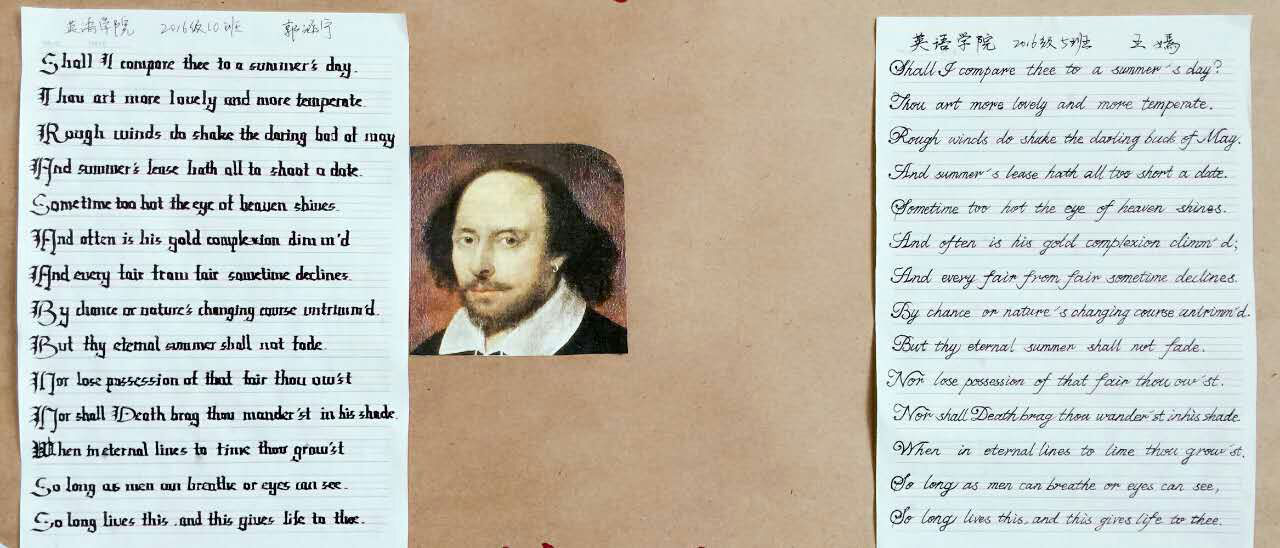 英语学院 2016级10班 郭涵宇
Shall I compare thee to a summer's day.
Thou art more lovely and more temperate.
Rough winds do shake the daring bad of may
And summer's lease hath all to shoot a date.
Sometime too hot the eye of heaven shines.
And often is his gold complexion dimm'd
And every fair from fair sometime declines.
By chance or nature's changing course untrimm'd.
But thy eternal summer shall not fade.
Nor lose possession of that fair thou ow'st
Nor shall Death brag thou wander'st in his shade.
When in eternal lines to time thou grow'st
So long as men can breathe or eyes can see.
So long lives this .and this gives life to thee.
英语学院 2016级5班 王嫣
Shall I compare thee to a summer's day?
Thou art more lovely and more temperate.
Rough winds do shake the darling buds of May.
And summer's lease hath all too short a date.
Sometime too hot the eye of heaven shines.
And often is his gold complexion dimm'd;
And every fair from fair sometime declines.
By chance or nature's changing course untrimm'd.
But thy eternal summer shall not fade.
Nor lose possession of that fair thou ow'st.
Nor shall Death brag thou wander'st in his shade.
When in eternal lines to lime thou grow'st.
So long as men can breathe or eyes can see,
So long lives this, and this gives life to thee.